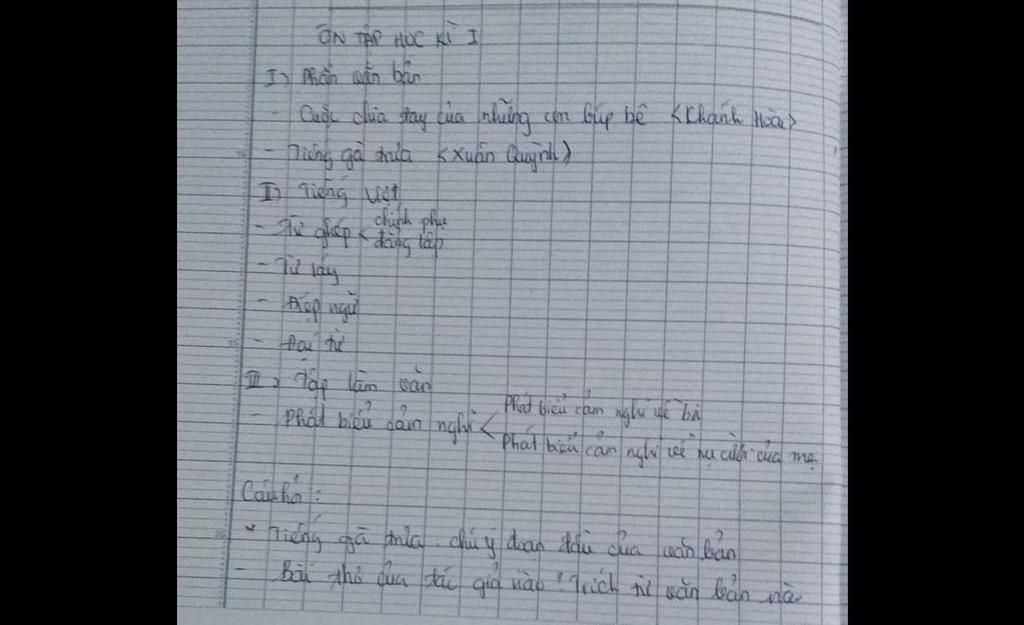 ÔN TẬP HỌC KÌ I
I) Phần văn bản
- Cuộc chia tay của những con búp bê <Khánh Hoài>
- Tiếng gà trưa <Xuân Quỳnh>
II) Tiếng Việt
- Từ ghép < chính phụ
đẳng lập
- Từ láy
- Điệp ngữ
- Đại từ
III) Tập làm văn
- Phát biểu cảm nghĩ < Phát biểu cảm nghĩ về bà
Phát biểu cảm nghĩ về nụ cười của mẹ
Câu hỏi:
Tiếng gà trưa chú ý đoạn đầu của văn bản
- Bài thơ của tác giả nào? Trích từ văn bản nà